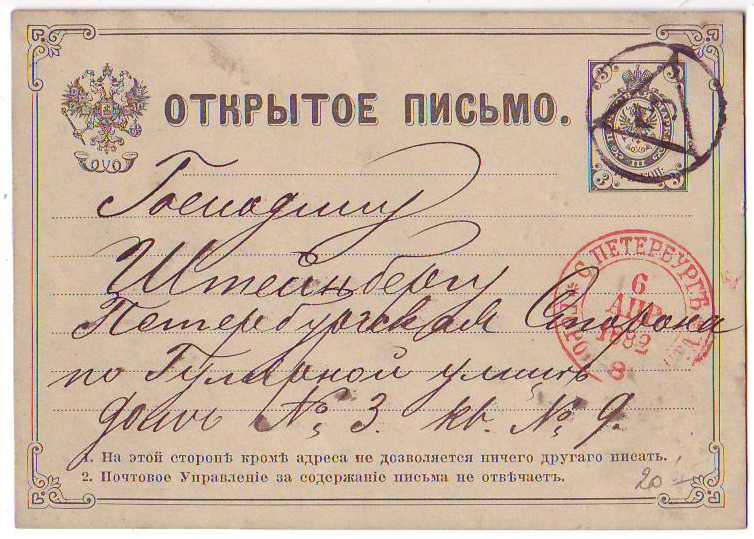 ОТКРЫТОЕ ПИСЬМО.
Господину
Штейнбергу
Петербургская Сторона
по Гулярной улицѣ
домъ № 3. кв. № 9.
С. ПЕТЕРБУРГЪ
6
АПР
1882
8
3
3
3
3
1. На этой сторонѣ кромѣ адреса не дозволяется ничего другаго писать.
2. Почтовое Управленіе за содержаніе письма не отвѣчаетъ.
20